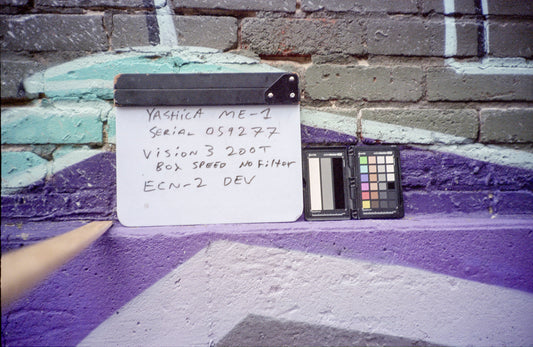 YASHICA ME-1
SERIAL 059277
VISION 3 200T
BOX SPEED NO FILTER
ECN-2 DEV